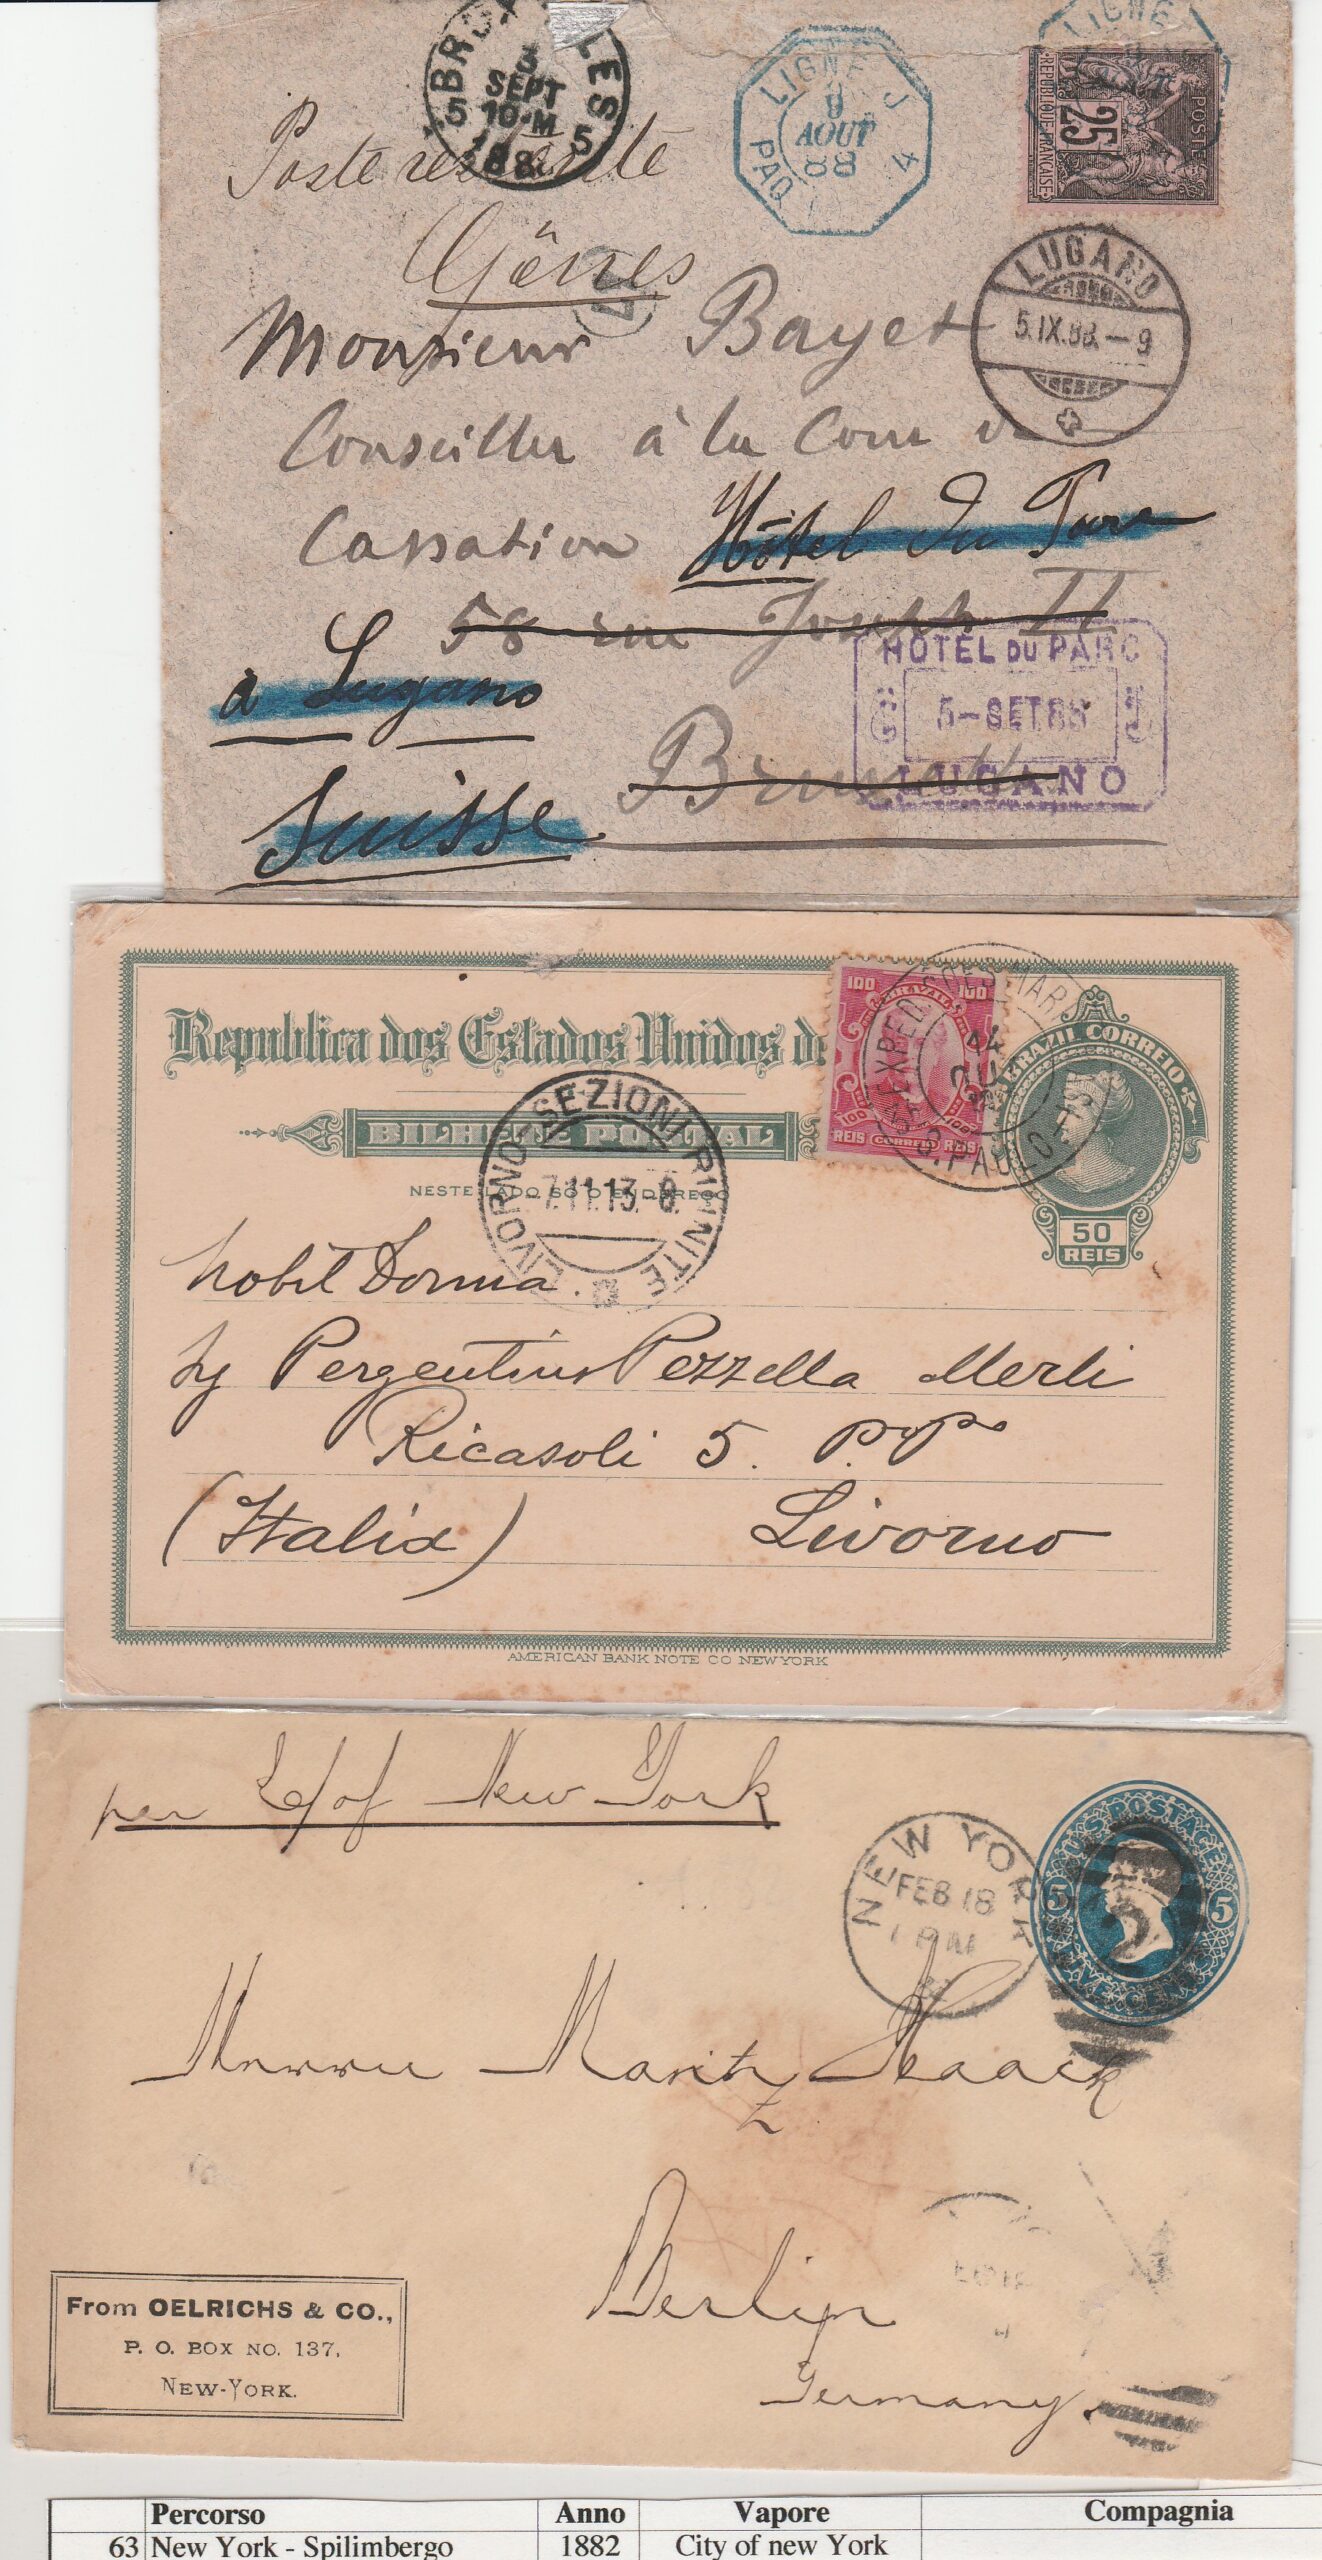 BR LES
3
SEPT
5 10-M 5
1888
LIGNE J
9
AOUT
88
PAQ. 4
LIGNE
POSTES
25
REPUBLIQUE FRANÇAISE
Poste restante
Gênes
LUGANO
5.IX.88.-9
Monsieur Bayet
Conseiller à la Cour de
Cassation Hôtel du Parc
58 rue Joseph II
à Lugano
HOTEL DU PARC
5-SET.88
LUGANO
Bruxelles
Suisse
Republica dos Estados Unidos do
100 BRAZIL 100
100 100
REIS CORREIO REIS
BRAZIL CORREIO
50
REIS
S. PAULO
BILHETE POSTAL
NESTE LADO SÓ O ENDEREÇO
LIVORNO-SEZIONI RIUNITE
7.11.13.-8
Nobil Donna
Pezzella Merli
Ricasoli 5. P.P.
(Italia) Livorno
AMERICAN BANK NOTE CO NEW YORK
per C/of New York
NEW YORK
FEB 18
1 PM
U.S. POSTAGE
5 5
FIVE CENTS
2
Herrn Moritz Haack
Berlin
Germany.
From OELRICHS & CO.,
P. O. BOX NO. 137,
NEW-YORK.
Percorso Anno Vapore Compagnia
63 New York - Spilimbergo 1882 City of new York